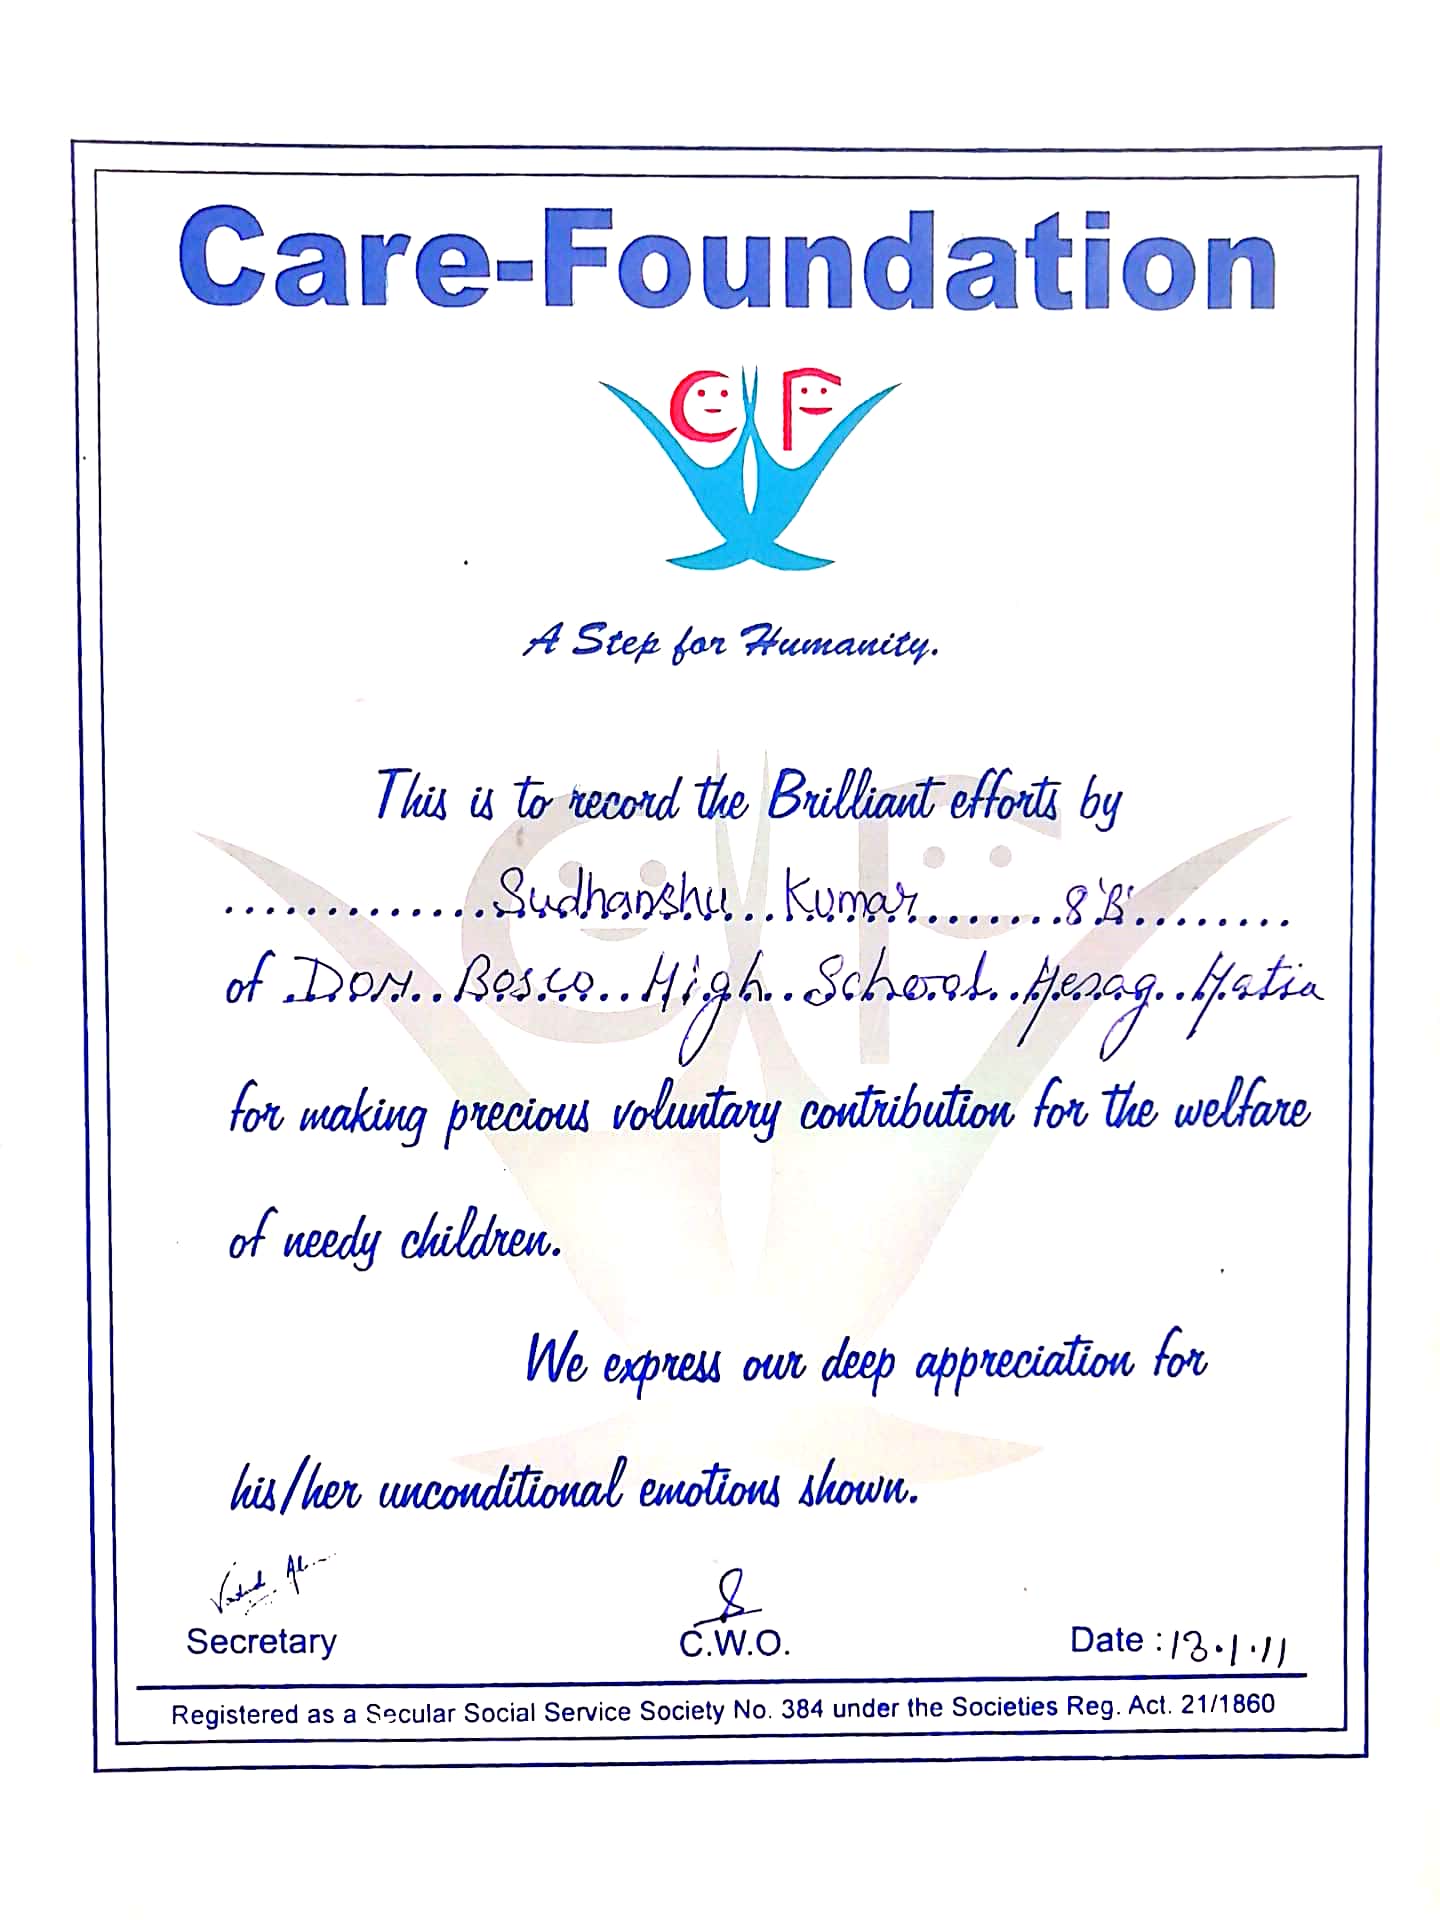 Care-Foundation
CF
A Step for Humanity.
This is to record the Brilliant efforts by
Sudhanshu Kumar 8'B'
of Don Bosco High School Hesag Hatia
for making precious voluntary contribution for the welfare
of needy children.
We express our deep appreciation for
his/her unconditional emotions shown.
Secretary C.W.O. Date : 13.1.11
Registered as a Secular Social Service Society No. 384 under the Societies Reg. Act. 21/1860